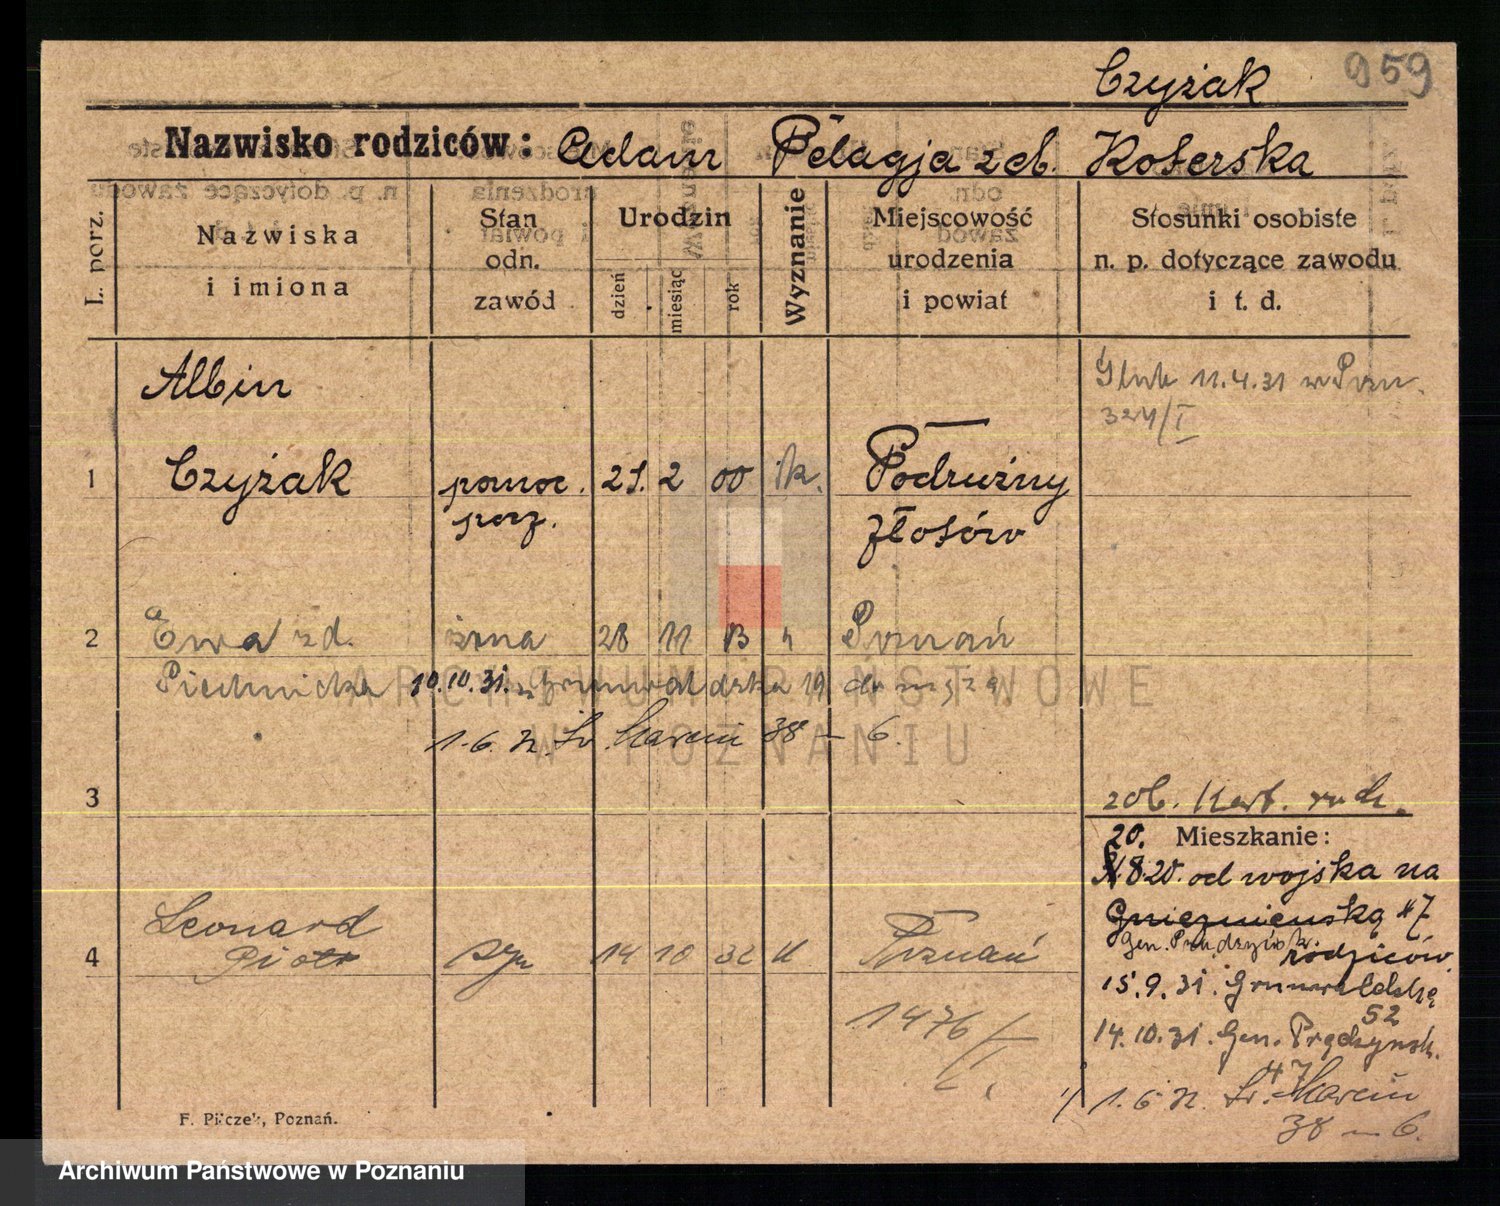 Czyżak 959
Nazwisko rodziców: Adam Pelagja zd. Koterska
L. porz.
Nazwiska
i imiona
Stan
odn.
zawód
Urodzin
dzień
miesiąc
rok
Wyznanie
Miejscowość
urodzenia
i powiat
Stosunki osobiste
n. p. dotyczące zawodu
i t. d.
Albin
Ślub 11.4.31 w Pozn.
324/I
1 Czyżak pomoc. 21. 2 00 rk. Podrużyny
Złotów
2 Ewa zd. żona 28 11 13 " Poznań
Piechnicka 10.10.31. Grunwaldzka 19
1.6.32. Św. Marcin 38 – 6.
3
zob. Kart. rodz.
20. Mieszkanie:
8 20. od wojska na
Gnieźnieńską 7
Gen. Prądzyńsk. rodziców
15.9.31. Grunwaldzką
52
14.10.31. Gen. Prądzyńsk.
47
1.6.32. Św. Marcin
38 – 6.
Leonard
4 Piotr syn 14 10 32 k Poznań
1476/I
F. Pilczek, Poznań.
ARCHIWUM PAŃSTWOWE
W POZNANIU
Archiwum Państwowe w Poznaniu